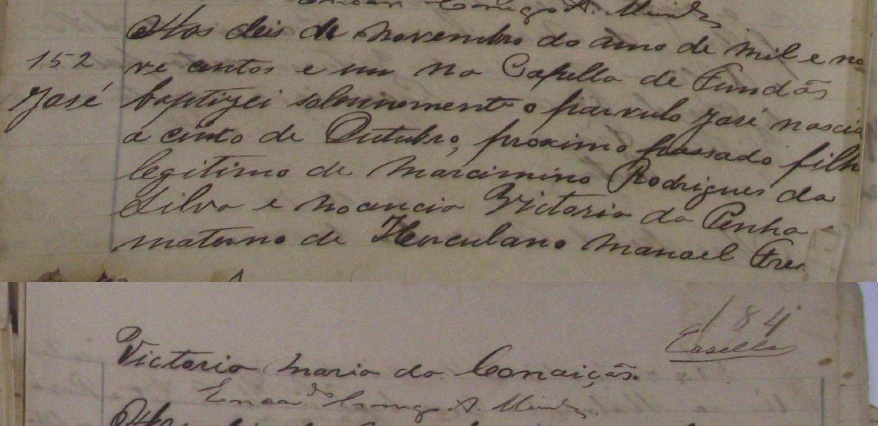 Encar Conego A. Mendes
Aos deis de novembro do anno de mil e no=
152 ve centos e um na Capella de Fundão
José baptizei solennemente o parvulo José nasci
a cinco de Outubro, proximo passado filh
legitimo de Marcimino Rodrigues da
Silva e Nocencia Victoria da Penha
materno de Herculano Manoel Fre
184
Casella
Victoria Maria da Conceição.
Encar do Conego A. Mendes